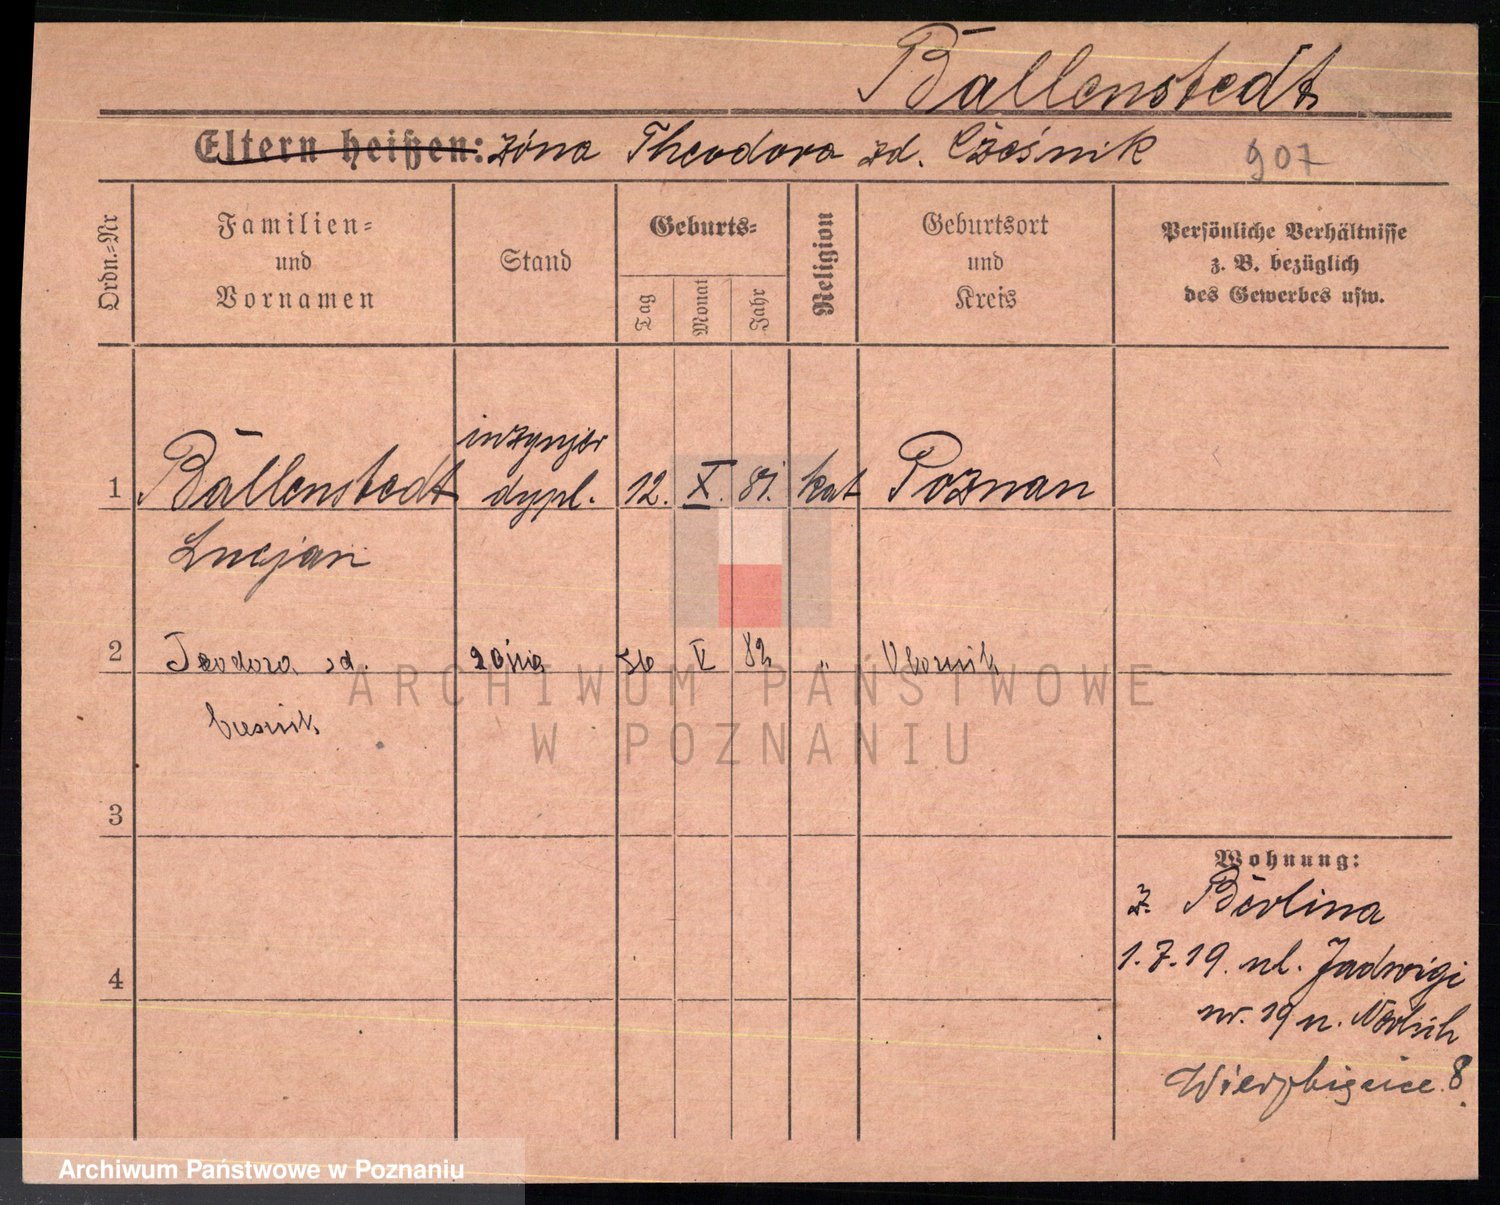 Ballenstedt
Eltern heißen: żóna Theodora zd. Cześnik 907
Ordn.-Nr
Familien-
und
Vornamen
Stand
Geburts-
Tag
Monat
Jahr
Religion
Geburtsort
und
Kreis
Persönliche Verhältnisse
z. B. bezüglich
des Gewerbes usw.
inżynjer
1 Ballenstedt dypl. 12. X. 81. kat Poznan
Lucjan
2 Teodora zd. żona V 82 "
ARCHIWUM PAŃSTWOWE
W POZNANIU
3
Wohnung:
z Berlina
4 1.7.19. ul. Jadwigi
nr. 19 u.
Wierzbięcice 8.
Archiwum Państwowe w Poznaniu